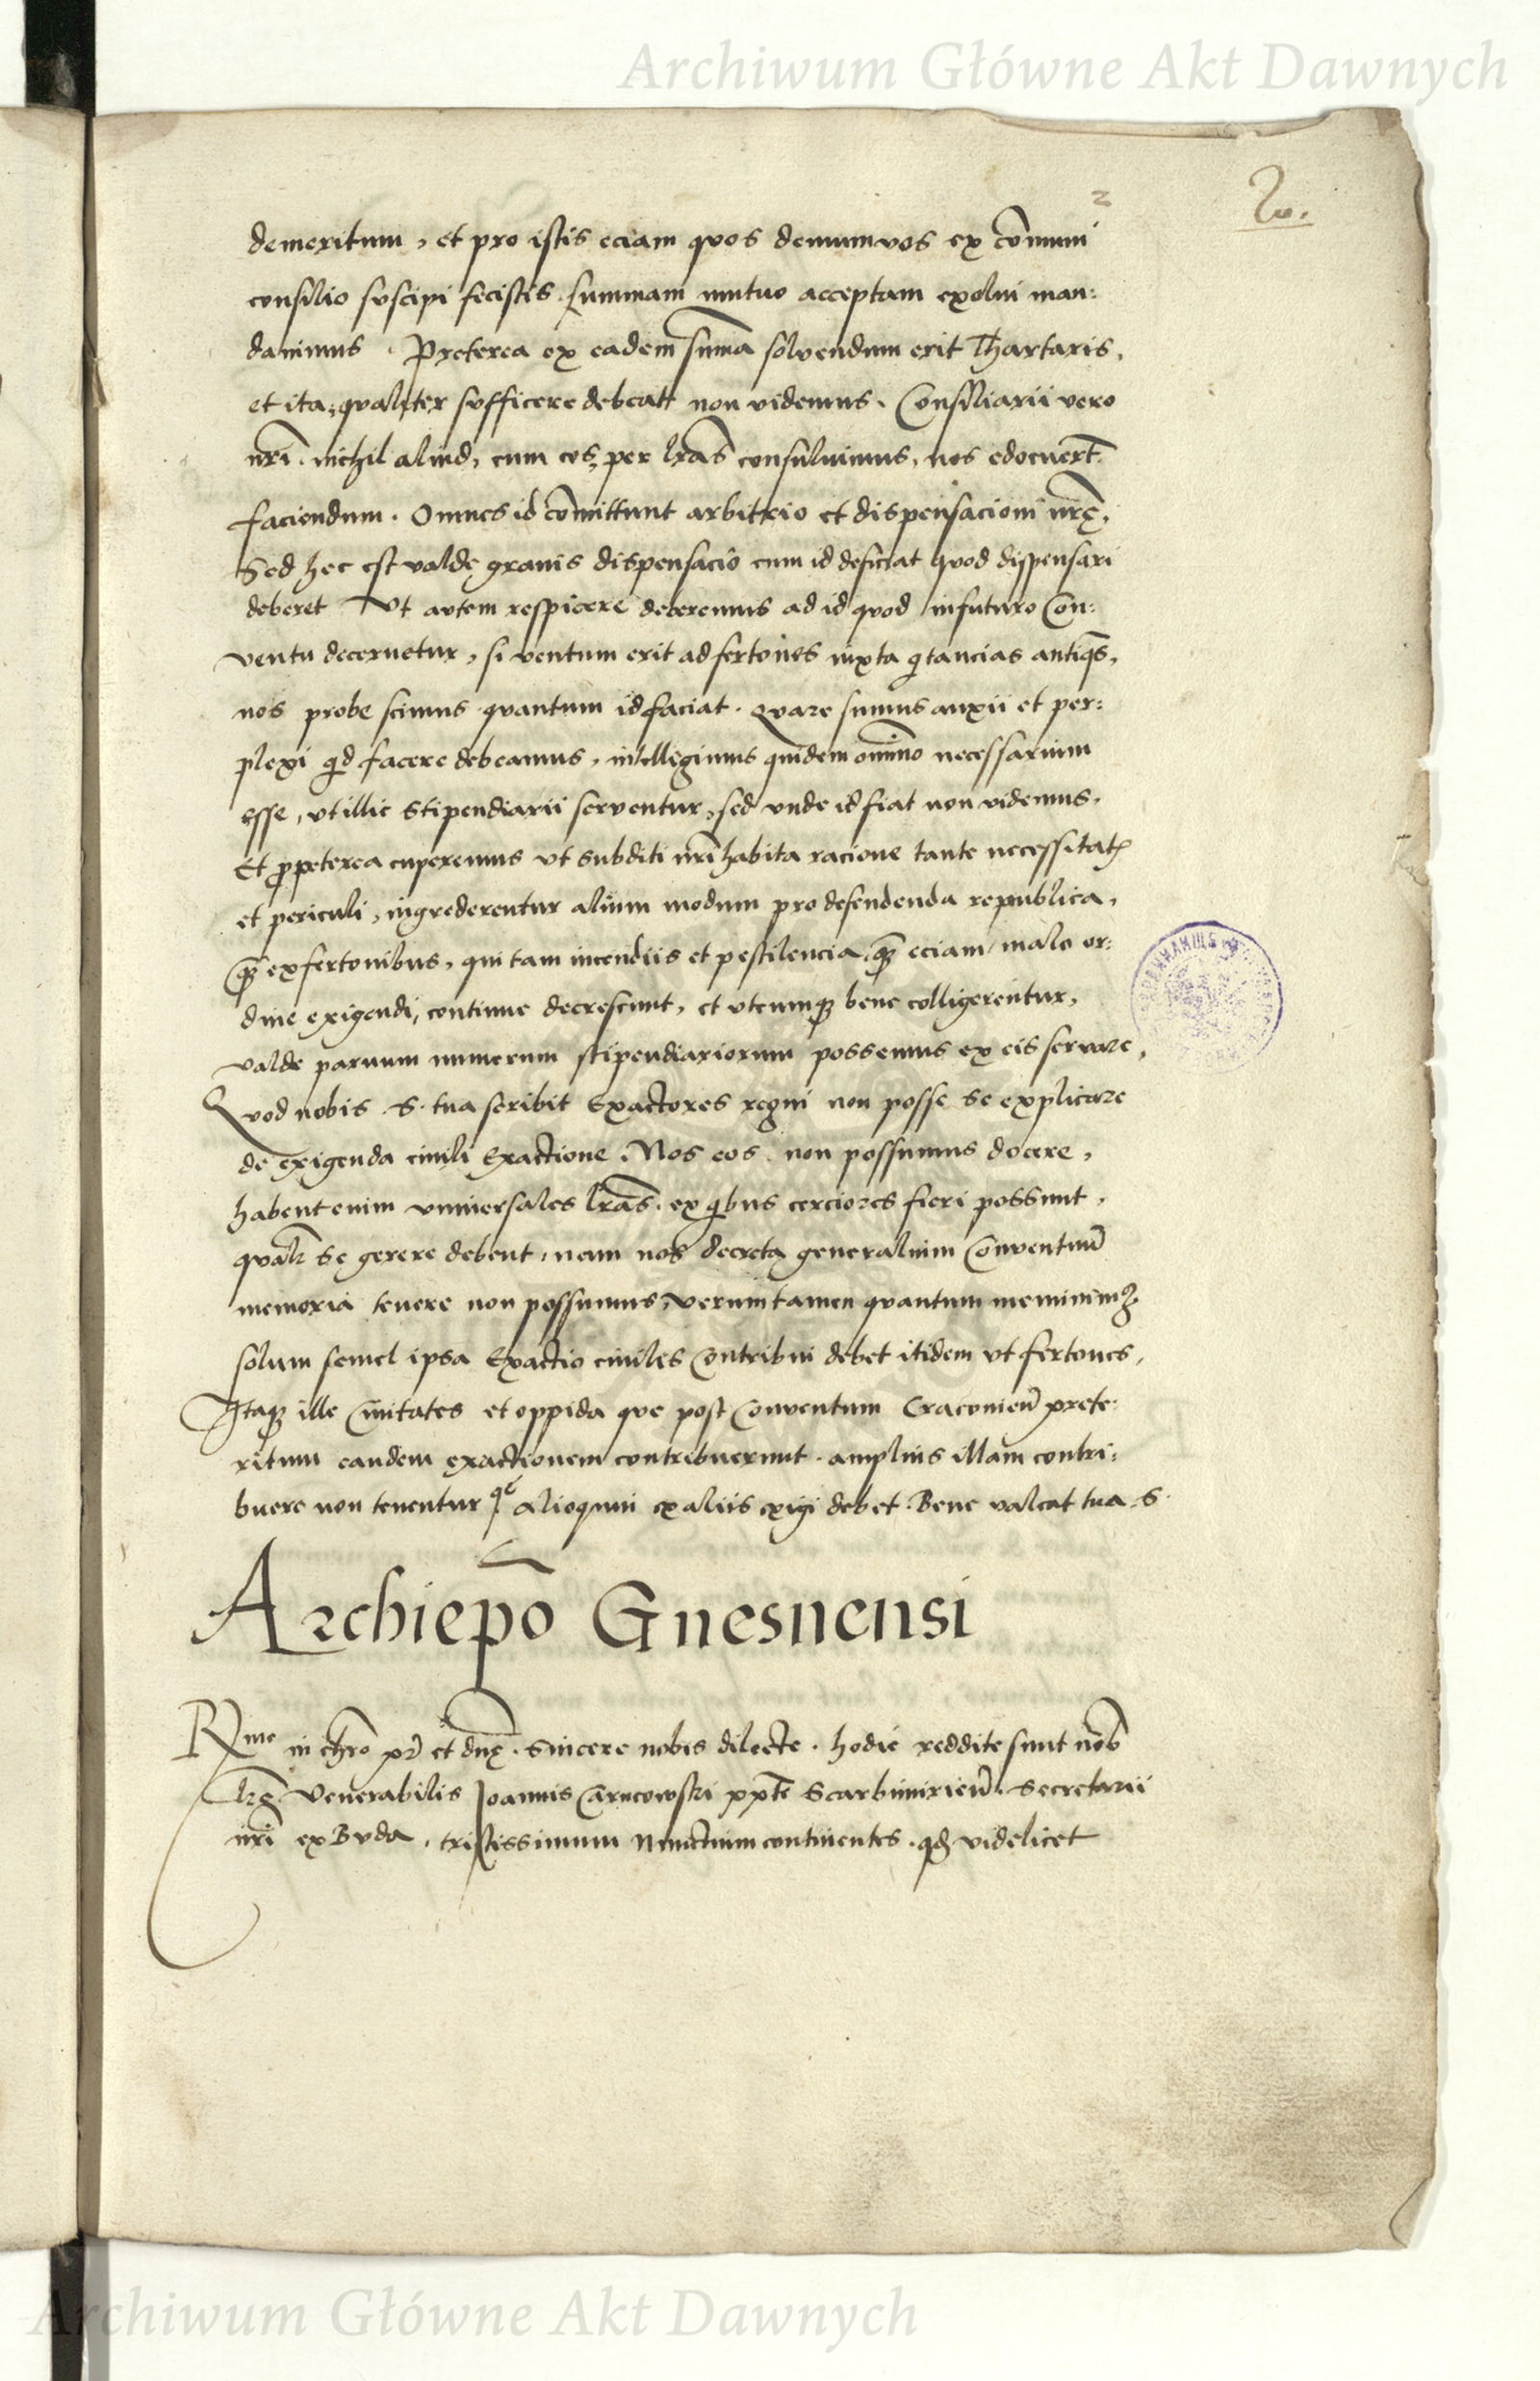 Archiwum Główne Akt Dawnych
2
2.
demeritum, et pro istis eciam quos demum vos ex cōmuni
consilio suscipi fecistis. summam mutuo acceptam exolui man:
dauimus. Preterea ex eadem sum̄a solvendum erit Thartaris,
et ita, qualiter sufficere debeat non videmus. Consiliarii vero
nr̄i. nichil aliud, cum eos per lr̄as consuluimus, nos edocuer̄t
faciendum. Omnes id cōmittunt arbitrio et dispensacioni nr̄ę,
Sed hec est valde gravis dispensacio cum id deficiat quod dispensari
deberet Ut autem respicere deberemus ad id quod in futuro Con:
ventu decernetur, si ventum erit ad fertones iuxta qitancias antiqs̄,
nos probe scimus quantum id faciat. Quare sumus anxii et per:
plexi qid facere debeamus, intelligimus quidem om̄ino necessarium
esse, ut illic Stipendiarii serventur, sed unde id fiat non videmus.
Et ꝓpterea cuperemus ut subditi nr̄i habita racione tante necessitatꝭ
et periculi, ingrederentur alium modum pro defendenda republica,
qꝫ̄ ex fertonibus, qui tam incendiis et pestilencia, qꝫ̄ eciam malo or:
dine exigendi, continue decrescunt, et utcumqꝫ bene colligerentur,
valde paruum numerum stipendiariorum possemus ex eis servare,
Quod nobis S. tua scribit Exactores regni non posse se explicare
de exigenda ciuili Exactione. Nos eos non possumus docere,
habent enim vniuersales lr̄as. ex qibus cerciores fieri possunt,
qualr̄ se gerere debent, nam nos decreta generalium Conventuū
memoria tenere non possumus, verumtamen quantum meminimꝫ
solum semel ipsa Exactio ciuiles Contribui debet itidem ut fertones,
Itaqꝫ ille Ciuitates et oppida que post Conventum Cracouien̄ prete:
ritum eandem exactionem contribuerunt. amplius illam contri:
buere non tenentur alioquin ex aliis exigi debet. Bene valeat tua S.
Archiep̄o Gnesnensi
Rme in chr̄o pr̄ et dn̄ę. Sincere nobis dilecte. hodie reddite sunt nob̄
lr̄ę Venerabilis Joannis Carncowski pp̄te Scarbimirien̄. Secretarii
nr̄i ex Buda, tristissimum Nunctium continentes. qđ videlicet
Archiwum Główne Akt Dawnych